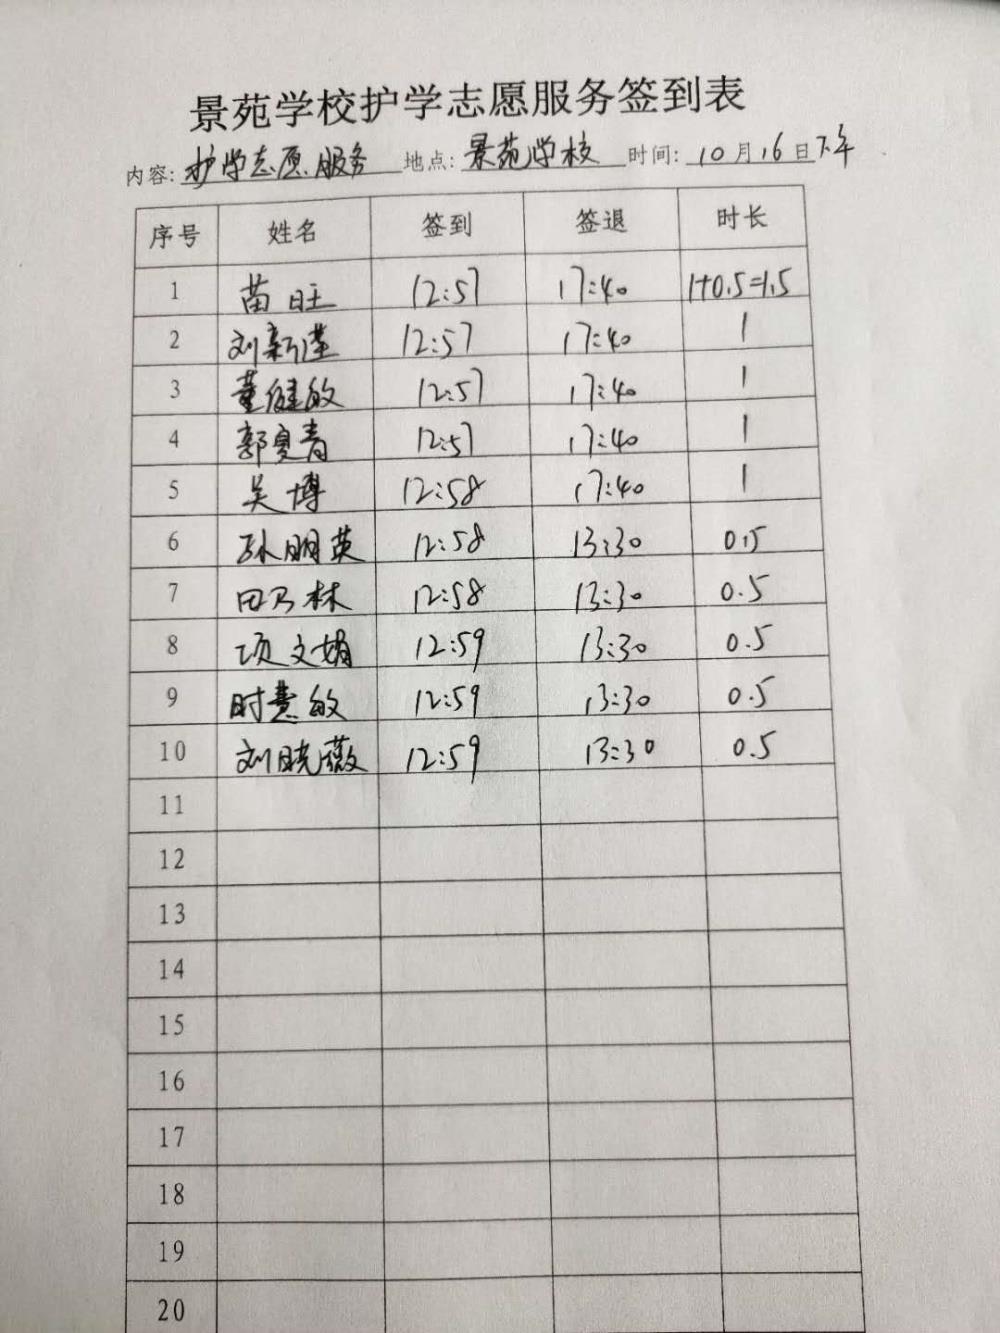 景苑学校护学志愿服务签到表
内容: 护学志愿服务 地点: 景苑学校 时间: 10月16日下午
序号 姓名 签到 签退 时长
1 苗旺 12:57 17:40 1+0.5=1.5
2 刘新莲 12:57 17:40 1
3 董健敏 12:57 17:40 1
4 郭夏青 12:57 17:40 1
5 吴博 12:58 17:40 1
6 孙明英 12:58 13:30 0.5
7 田乃林 12:58 13:30 0.5
8 项文娟 12:59 13:30 0.5
9 时慧敏 12:59 13:30 0.5
10 刘晓薇 12:59 13:30 0.5
11
12
13
14
15
16
17
18
19
20